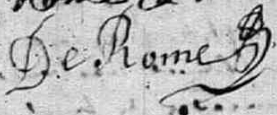 De Rome